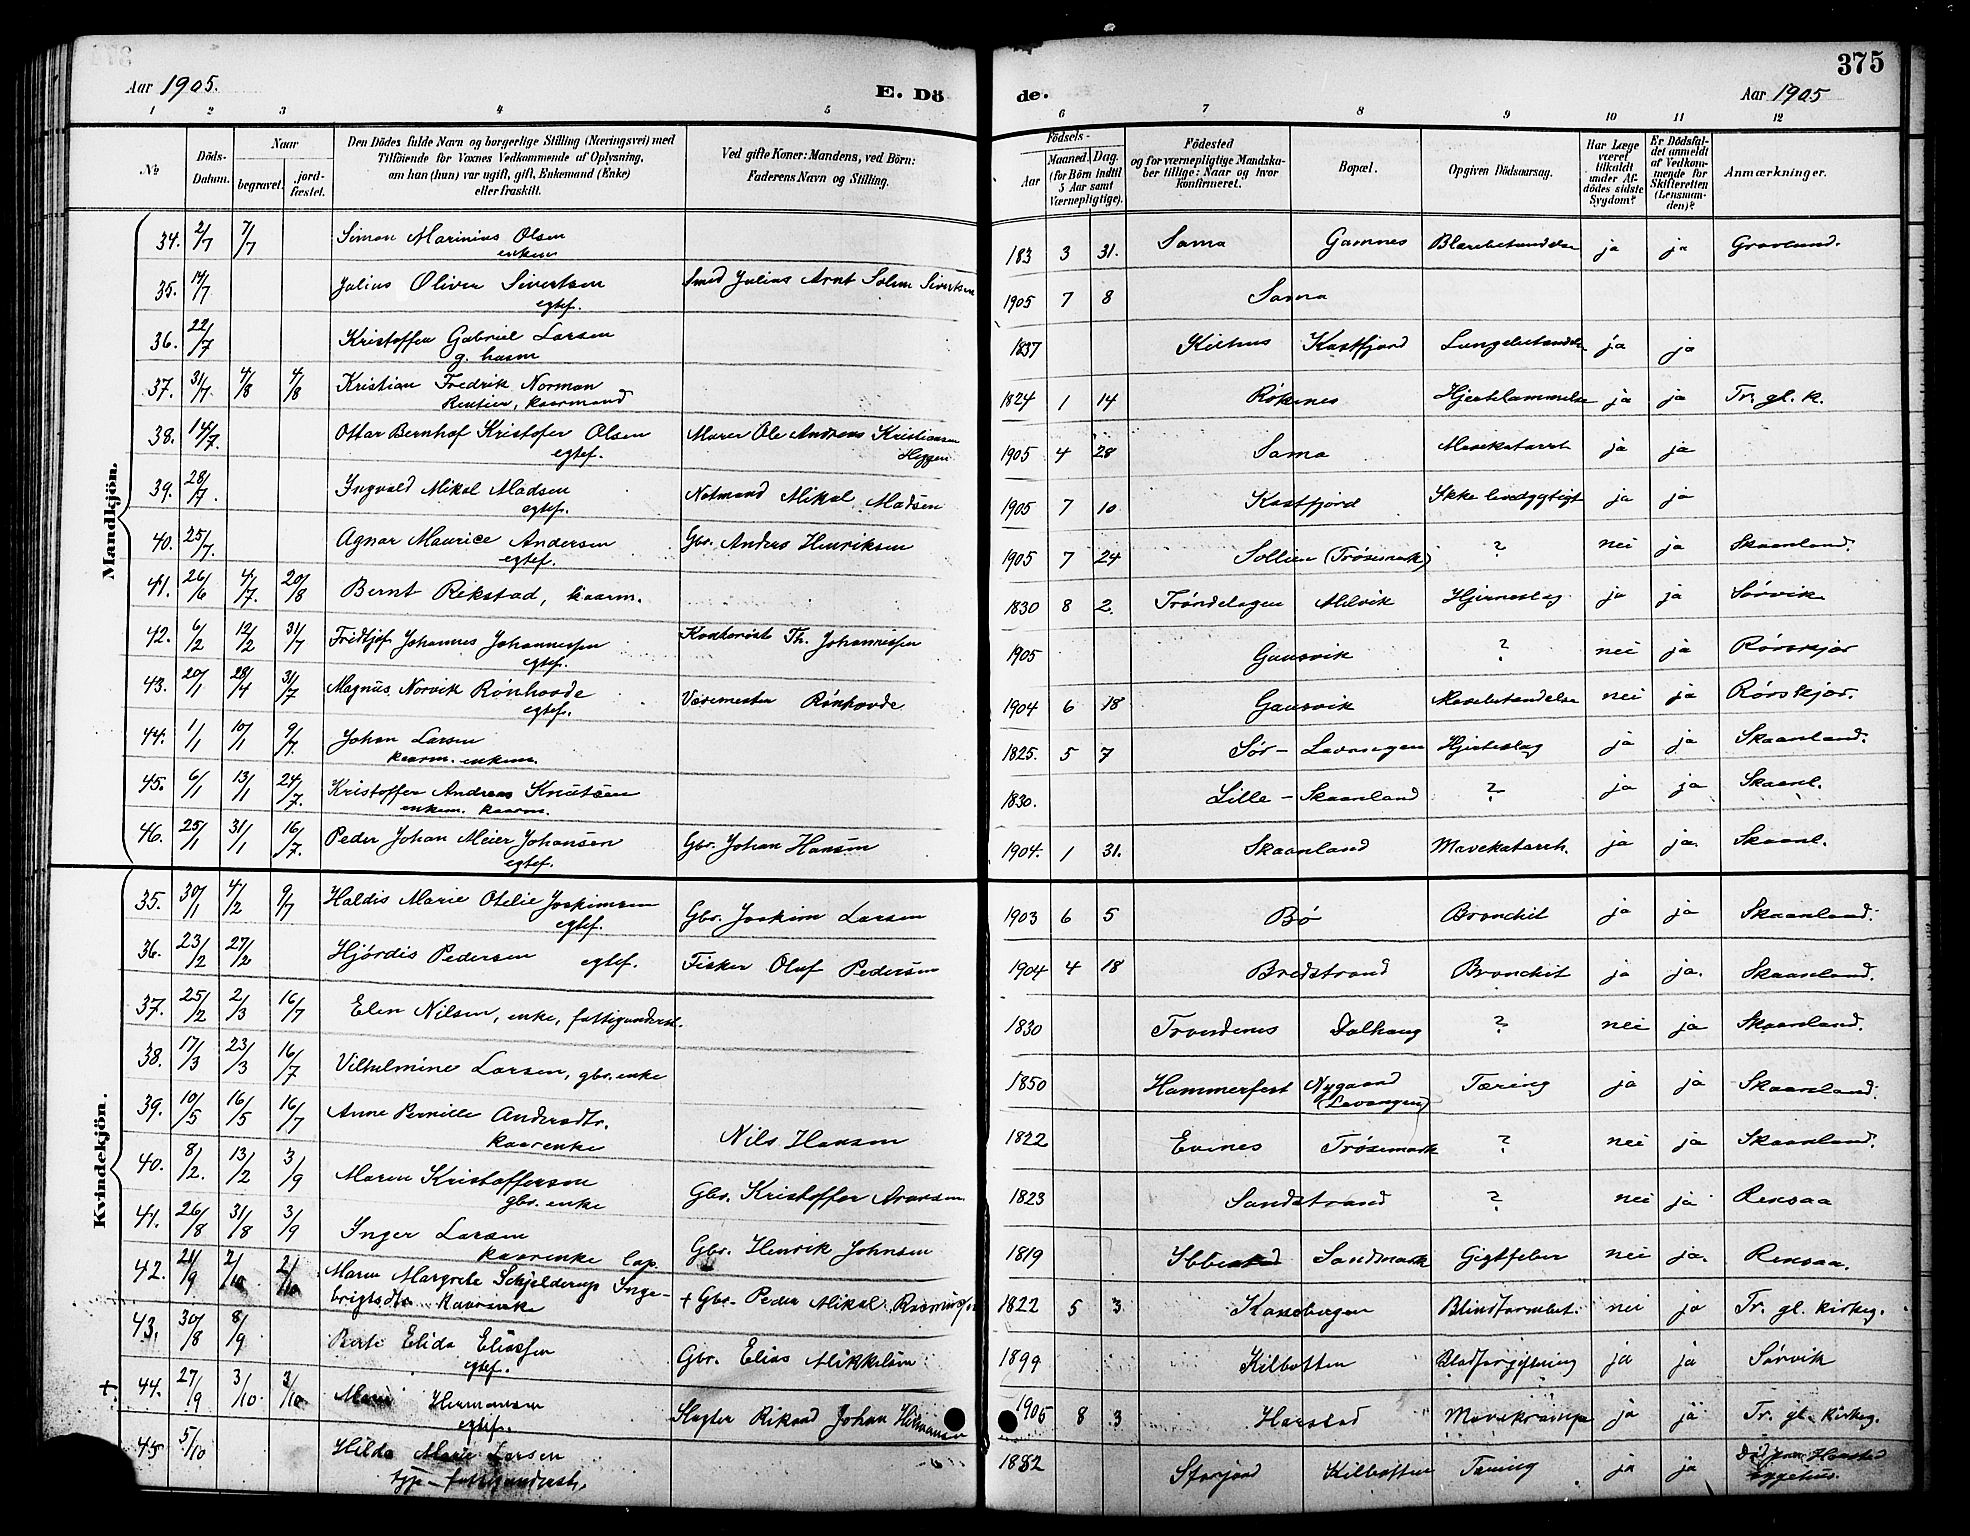 375
Aar 1905.
E. Dö
de.
Aar 1905
1 2 3 4 5 6 7 8 9 10 11 12
No
Döds-
Datum.
Naar
begravet.
jord-
fæstet.
Den Dödes fulde Navn og borgerlige Stilling (Næringsvei) med
Tilföiende for Voxnes Vedkommende af Oplysning,
om han (hun) var ugift, gift, Enkemand (Enke)
eller fraskilt.
Ved gifte Koner: Mandens, ved Börn:
Faderens Navn og Stilling.
Födsels-
Aar
Maaned. Dag.
(for Börn indtil
5 Aar samt
Værnepligtige).
Födested
og for værnepligtige Mandska-
ber tillige: Naar og hvor
konfirmeret.
Bopæl.
Opgiven Dödsaarsag.
Har Læge
været
tilkaldt
under Af-
dödes sidste
Sygdom?
Er Dödsfal-
det anmeldt
af Vedkom-
mende for
Skifteretten
(Lensman-
den)?
Anmærkninger.
Mandkjön.
34. 2/7 7/7 Simon Marinius Olsen 183 3 31. Sama Gamnes ja ja
enkem
35. 17/7 Julius Oliver Sivertsen Smed Julius Arnt Solem Sivertsen 1905 7 8 Sama
egtef.
36. 22/7 Kristoffer Gabriel Larsen 1837 Kilhus Kastfjord Lungebetændelse ja ja
g. husm
37. 31/7 4/8 4/8 Kristian Fredrik Norman 1824 1 14 Røkenes Hjertelammelse ja ja Tr. gl. k.
Rentier, kaarmand
38. 14/7. Ottar Bernhof Kristofer Olsen Murer Ole Andreas Kristiansen 1905 4 28 Sama Mavekatarrh ja ja
egtef. Heggen
39. 28/7. Ingvald Mikal Madsen Notmand Mikal Madsen 1905 7 10 Kastfjord Ikke livsdygtigt ja ja
egtef.
40. 25/7. Agnar Maurice Andersen Gbr. Anders Henriksen 1905 7 24 Sollien (Trøsemark) ? nei ja Skaanland.
egtef.
41. 26/6 4/7. 20/8 Bernt Rekstad, kaarm. 1830 8 2. Trøndelagen Melvik Hjerneslag ja ja Sørvik
42. 6/2 12/2 31/7 Fredtjof Johannes Johannessen Kontorist Th. Johannessen 1905 Gausvik ? nei ja Rørskjær
egtef.
43. 20/1 28/4 31/7 Magnus Norvik Rønhovde Rønhovde 1904 6 18 Gausvik Mavebetændelse nei ja Rørskjær.
egtef.
44. 1/1 10/1 9/7. Johan Larsen 1825. 5 7 Sør-Lavangen Hjerteslag ja ja Skaanland.
kaarm. enkem.
45. 6/1 13/1 24/7. Kristoffer Andreas Knutsen 1830. Lille-Skaanland ? ja ja Skaanl.
enkem. kaarm.
46. 25/1 31/1 16/7. Peder Johan Meier Johansen Gbr. Johan Hansen 1904. 1 31. Skaanland Mavekatarrh. ja ja. Skaanl.
egtef.
Kvindekjön.
35. 30/1 4/2 9/7 Haldis Marie Otelie Joakimsen Gbr. Joakim Larsen 1903 6 5 Bø Bronchit ja ja Skaanland.
egtef.
36. 23/2 27/2 Hjørdis Pedersen egtef. Fisker Oluf Pedersen 1904 4 18 Bredstrand Bronchit ja ja. Skaanland.
37. 25/2 2/3 16/7 Elen Nilsen, enke, fattigunderst. 1830 Trondenes Dalhaug ? nei ja Skaanland.
38. 17/3 23/3 16/7 Vilhelmine Larsen, gbr. enke 1850 Hammerfest Nygaard Tæring ja ja Skaanland.
(Lavangen)
39. 10/5 16/5 16/7 Anne Pernille Andersdtr. Nils Hansen 1822 Evines Trøsemark ? nei ja Skaanland.
kaarenke
40. 8/2. 13/2 3/9 Maren Kristofferson Gbr. Kristoffer 1823 Sandstrand ? nei ja Rensaa
gbr. enke
41. 26/8 31/8 3/9 Inger Larsen Gbr. Henrik Johnsen 1819 Ibbestad Sandmark Gigtfeber nei ja. Rensaa.
kaarenke lap.
42. 21/9 2/10 2/10 Maren Margrete Schjelderup Inge- + Gbr. Peder Mikal Rasmussen 1822 5 3 Kanebogen Blindtarmbet. nei ja Tr. gl. kirkeg.
brigtsdtr kaarenke
43. 30/8 8/9 Elida Eliassen Gbr. Elias Mikkelsen 1899 Kilbotten Blodforgiftning ja ja Sørvik
egtef.
+ 44. 27/9 3/10. 3/10 Marie Hermansen Slagter Rikard Johan Hermansen 1905 8 3 Harstad Mavekrampe ja ja Tr. gl. kirkeg.
egtef.
45 5/10 Hilda Marie Larsen 1882 Kilbotten Tæring ja ja Harstad
fattigunderst. sygehus.